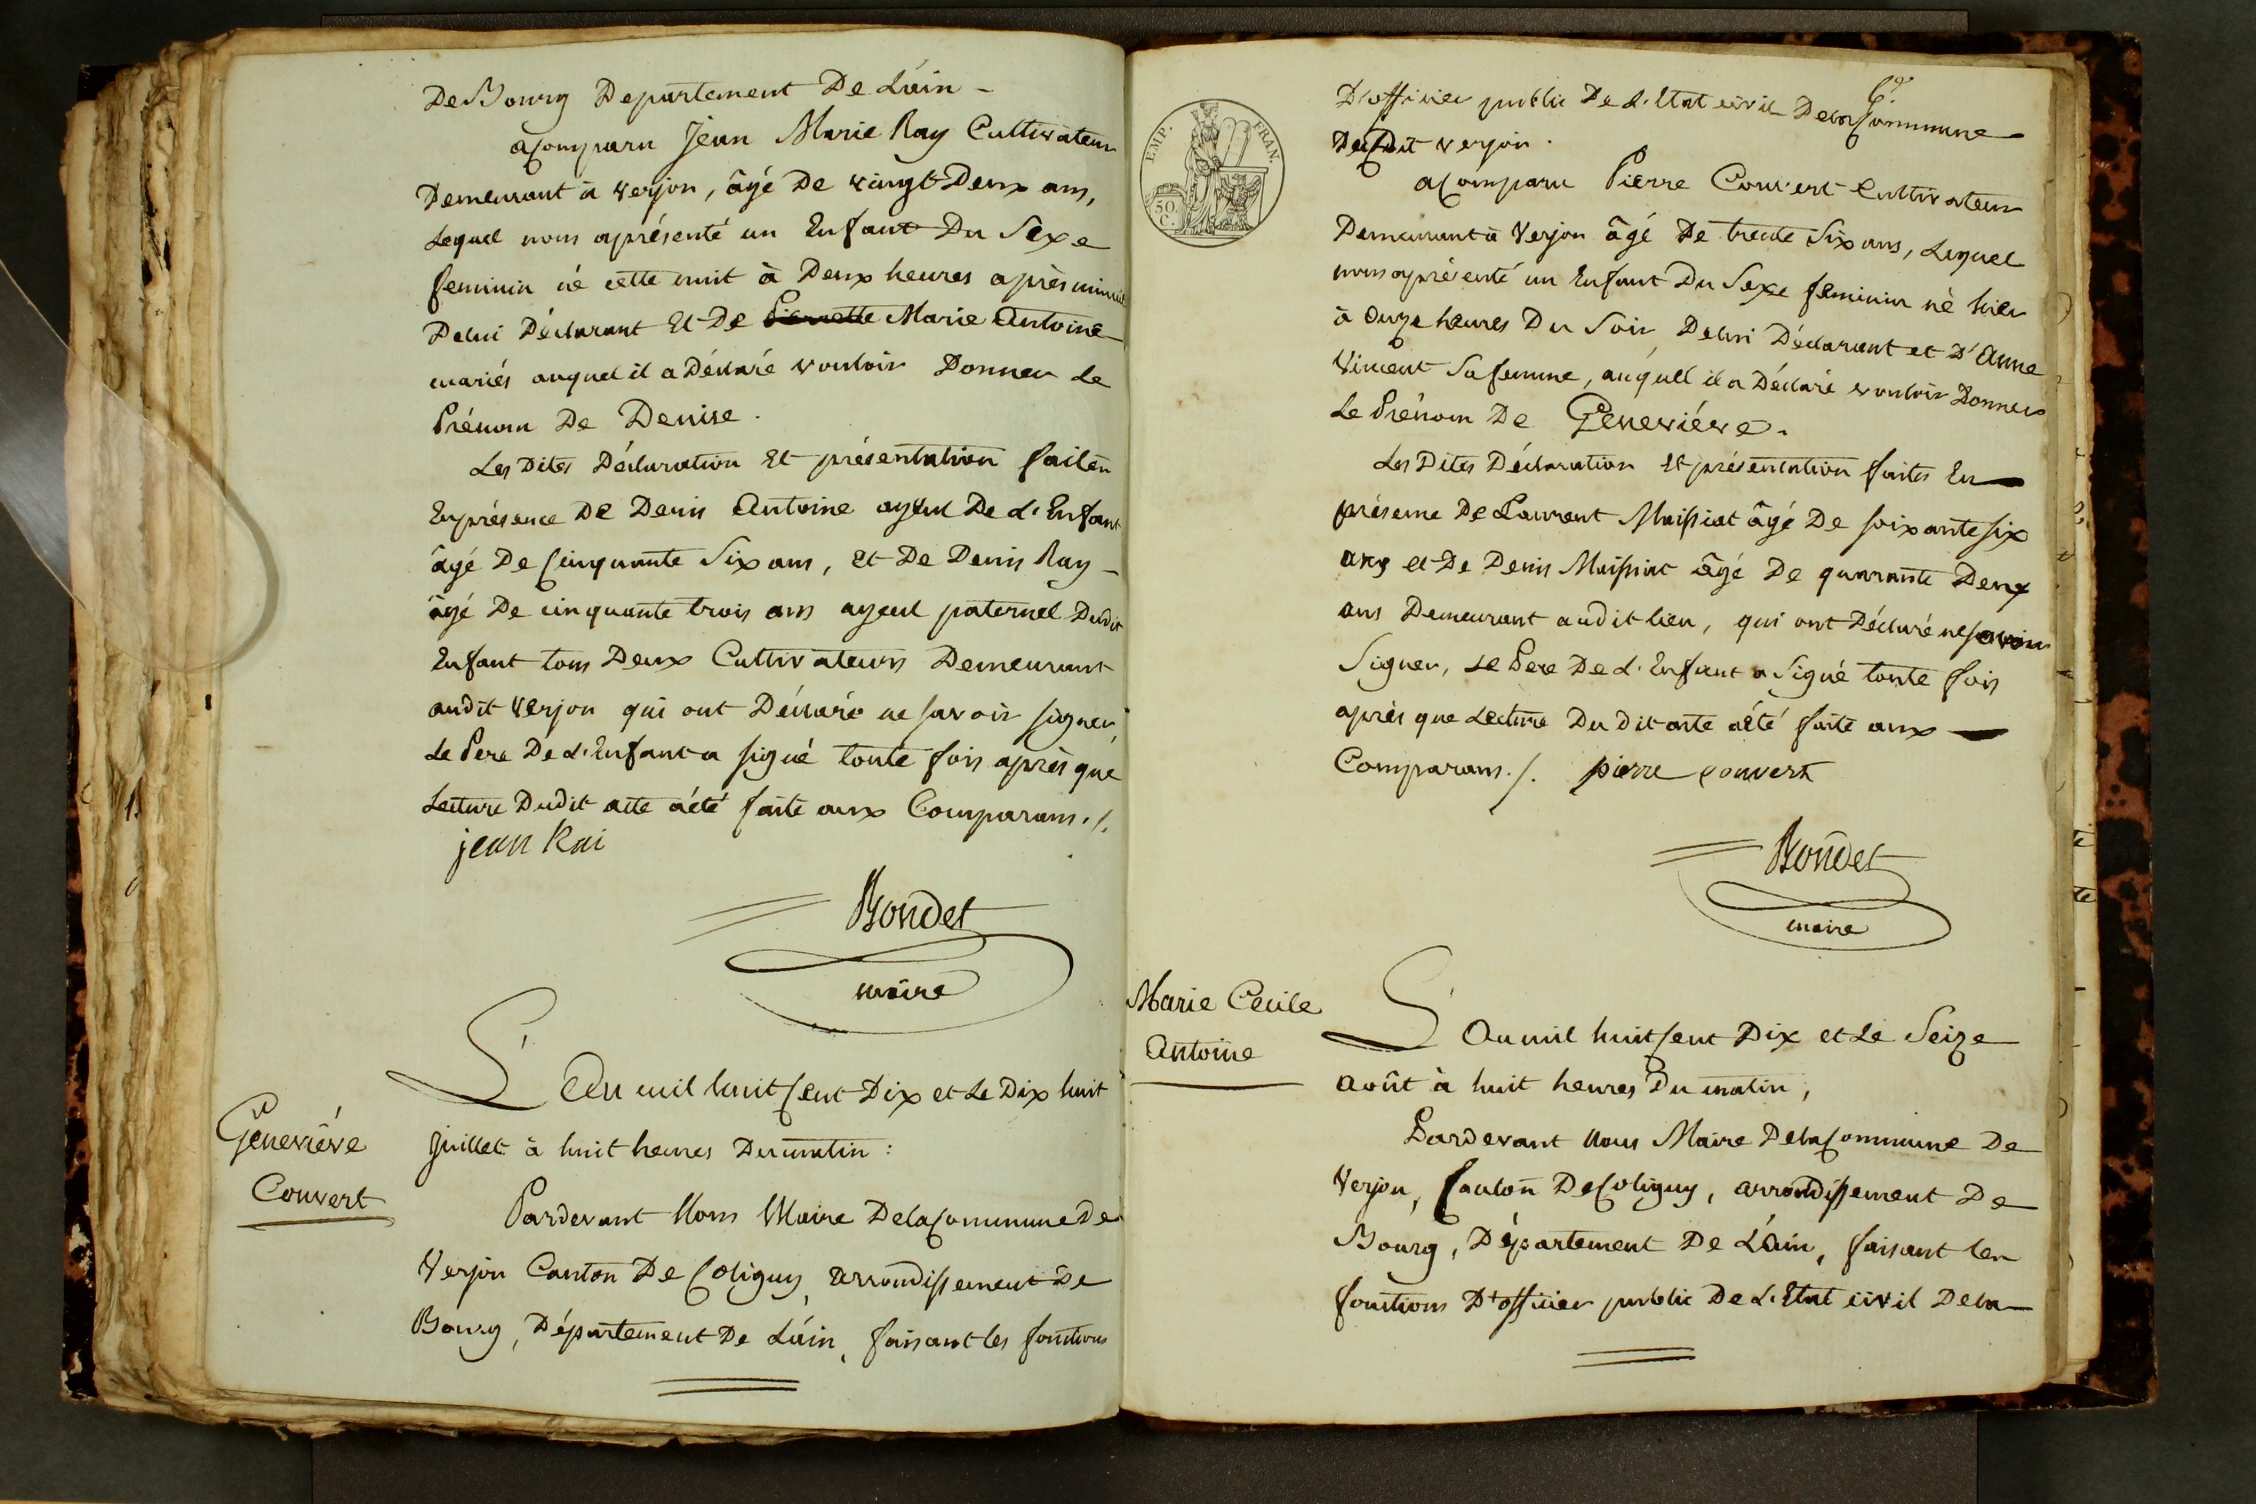 De Bourg Departement De L'ain -
a Comparu Jean Marie Ray Cultivateur
Demeurant à verjon, âgé De vingt Deux ans,
Lequel nous a présenté un Enfant Du Sexe
feminin né cette nuit à Deux heures après minuit
De lui Déclarant Et De Pierrette Marie Antoine
mariés auquel il a Déclaré vouloir Donner Le
Prénom De Denise.
Les Dites Déclaration Et présentation fait en
En présence De Denis Antoine ayeul De L'Enfant
âgé De Cinquante Six ans, Et De Denis Ray -
âgé De cinquante trois ans ayeul paternel Dudit
Enfant tous Deux Cultivateurs Demeurant
audit verjon qui ont Déclaré ne savoir signer,
Le Pere De L'Enfant a signé toute fois après que
Lecture Dudit acte a été faite aux Comparans ./.
jean Rai
Bondet
maire
Géneviéve
Convert
L'An mil huit Cent Dix et Le Dix huit
Juillet à huit heures Du matin :
Pardevant Nous Maire De la Commune De
Verjon Canton De Coligny, arrondissement De
Bourg, Département De L'ain, faisant les fonctions
EMP. FRAN.
50.
C.
D'officier public De L'Etat civil De la Commune
Du Dit verjon.
a Comparu Pierre Convert Cultivateur
Demeurant à Verjon âgé De trente Six ans, Lequel
nous a présenté un Enfant Du Sexe feminin né hier
à Onze heures Du Soir, De lui Déclarant et D'Anne
Vincent Sa femme, auquel il a Déclaré vouloir Donner
Le Prénom De Geneviéve.
Les Dites Déclaration Et présentation faites En
présence De Laurent Maissiat âgé De soixante six
ans et De Denis Maissiat âgé De quarante Deux
ans Demeurant audit lieu, qui ont Déclaré ne savoir
Signer, Le Pere De L'Enfant a Signé toute fois
après que Lecture Du Dit acte a été faite aux
Comparans ./. pierre convert
Bondet
maire
Marie Cecile
Antoine
L'An mil huit Cent Dix et Le Seize
août à huit heures Du matin,
Pardevant Nous Maire De la Commune De
Verjon, Canton De Coligny, arrondissement De
Bourg, Département De L'Ain, faisant les
fonctions D'officier public De L'Etat civil De la